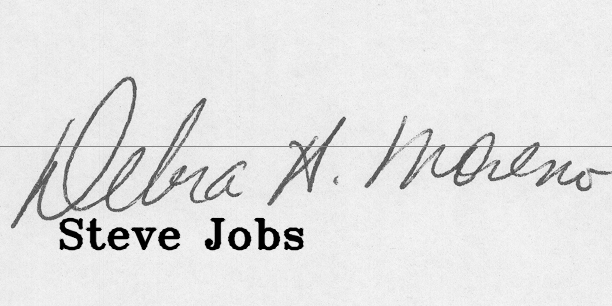 Debra H. Moreno
Steve Jobs